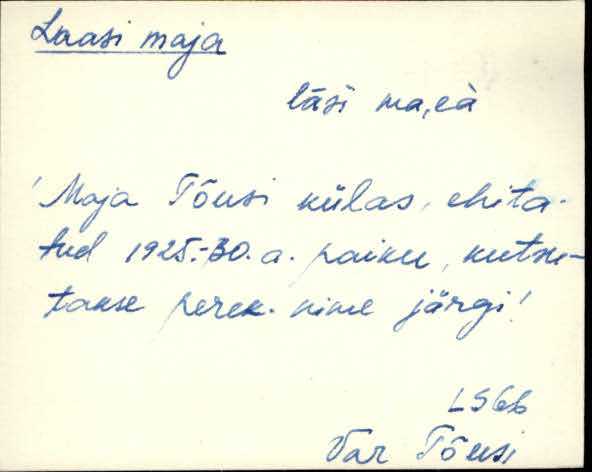 Laasi maja
lāśi ma,eà
'Maja Tõusi külas, ehita-
tud 1925.-30. a. paiku, kutsu-
takse perek. nime järgi!
LS66
Var Tõusi